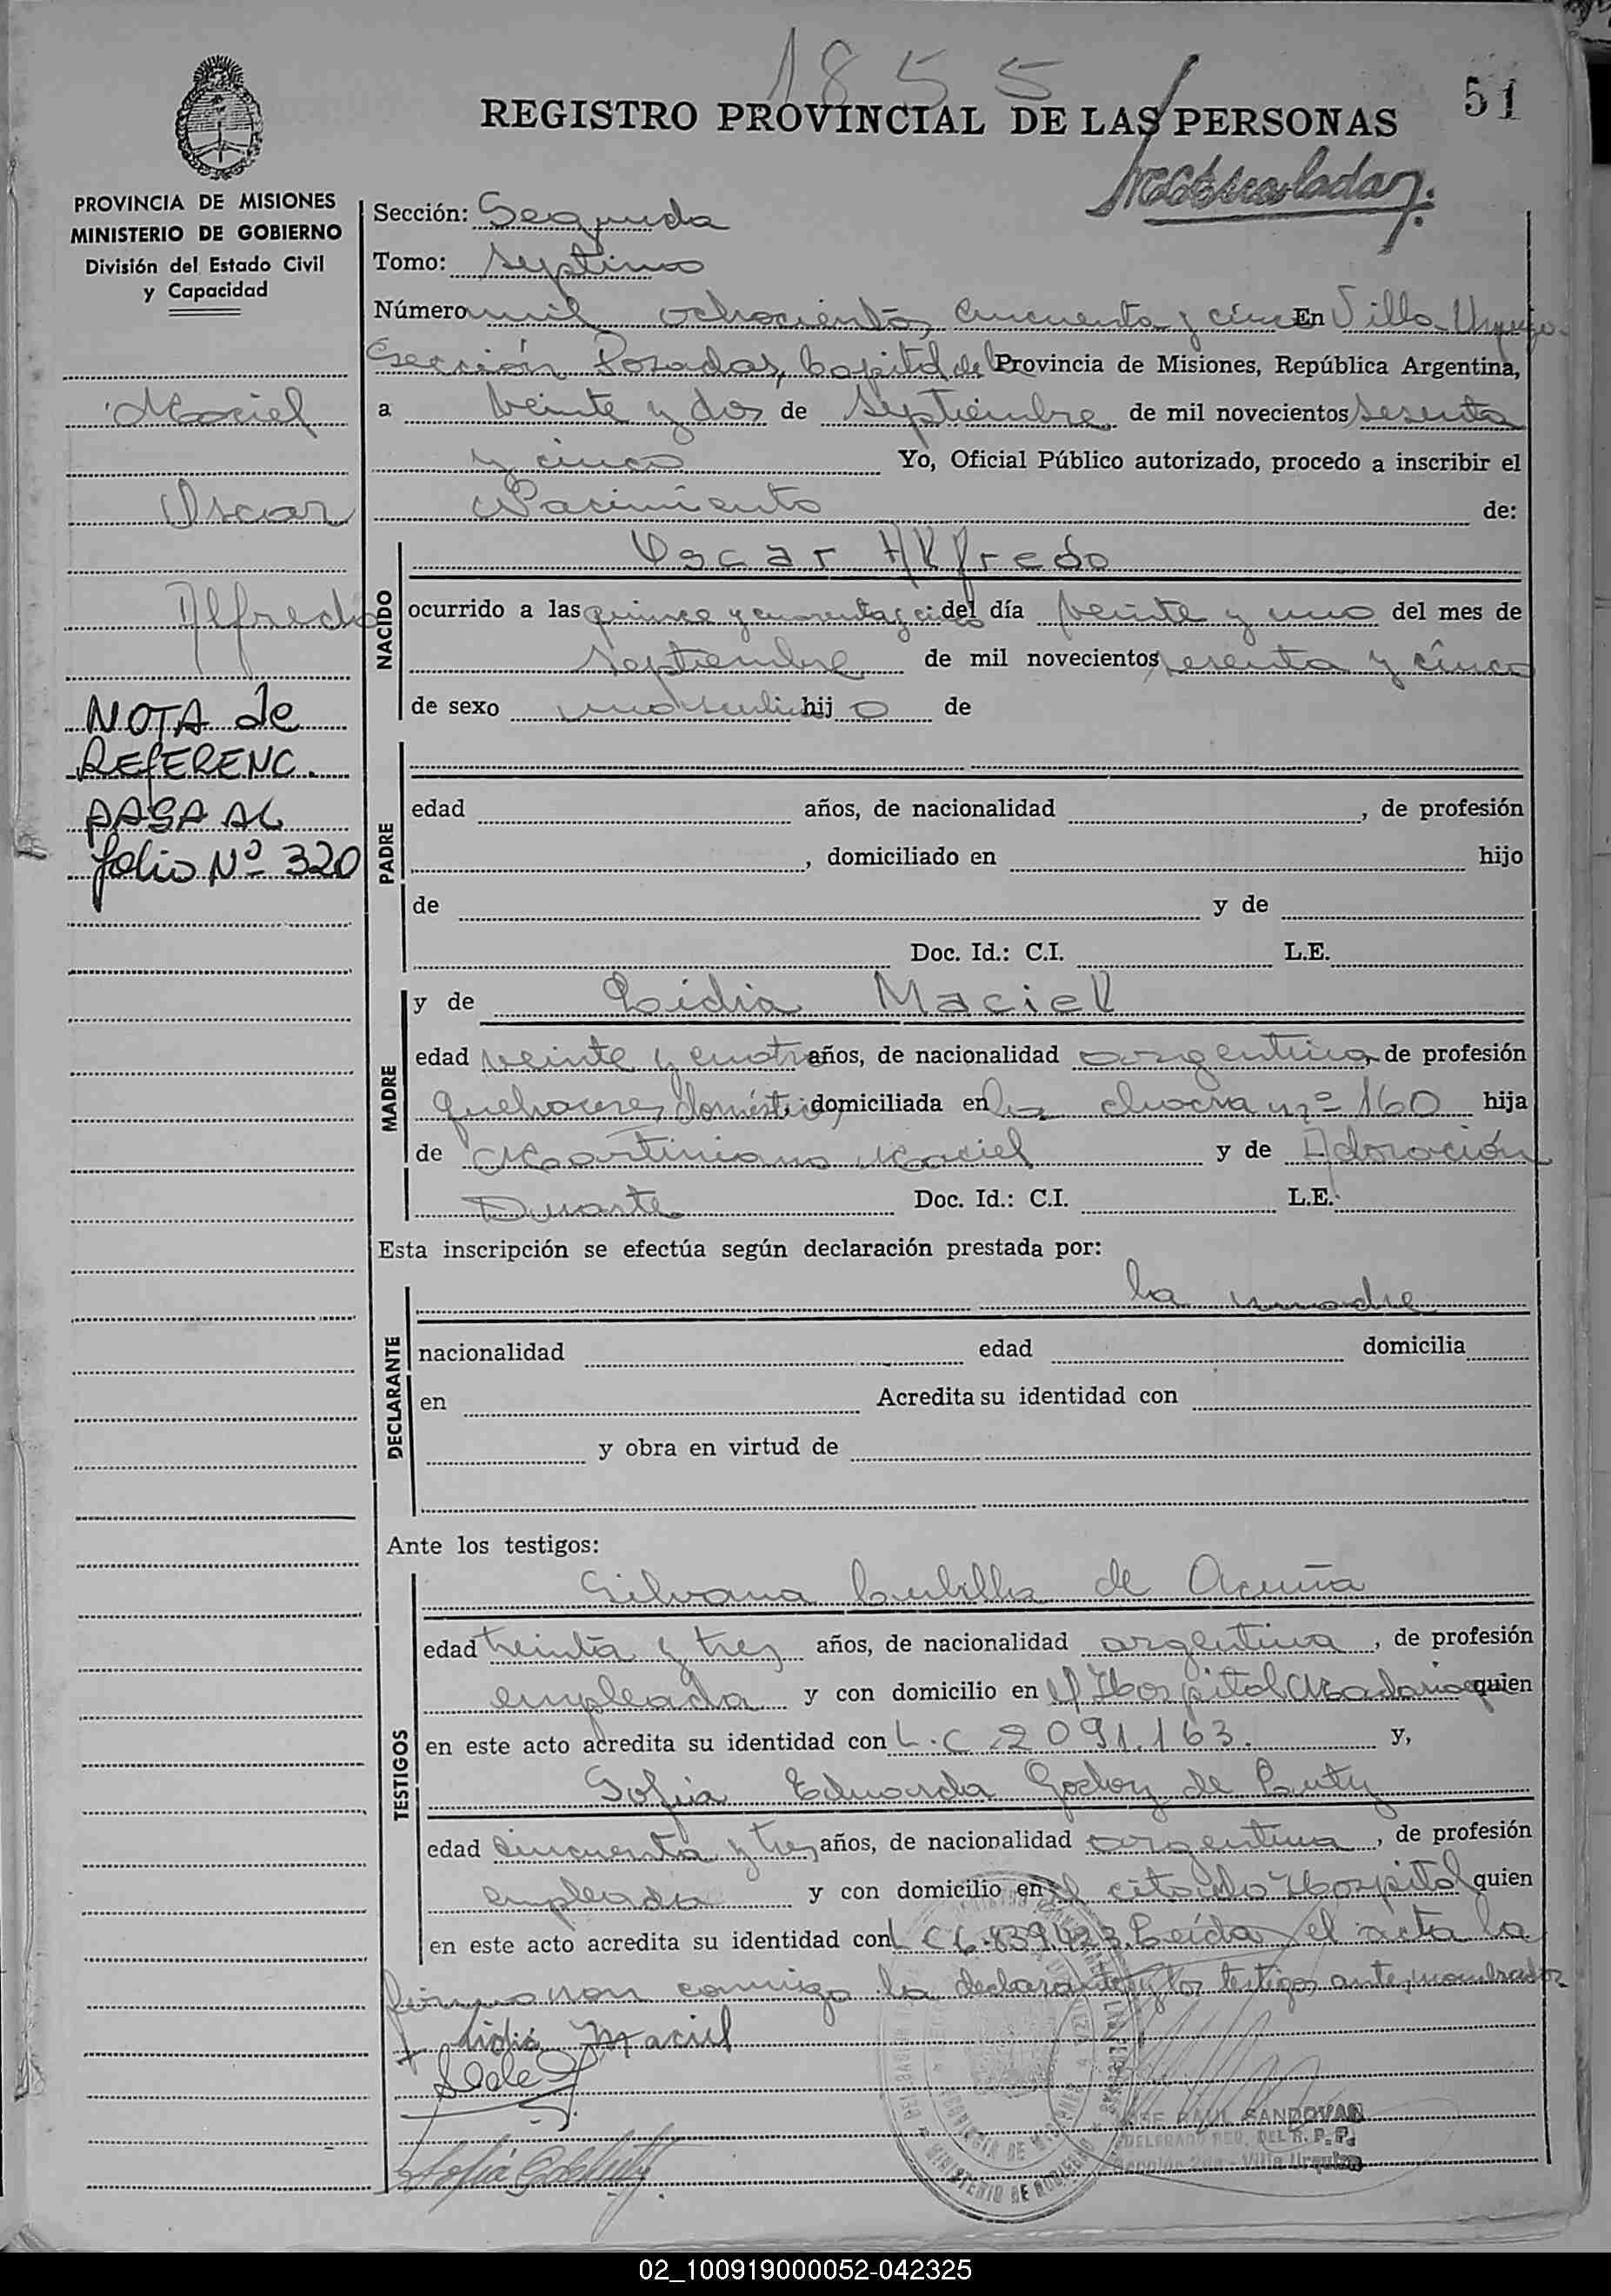 1855
51
REGISTRO PROVINCIAL DE LAS PERSONAS
PROVINCIA DE MISIONES
MINISTERIO DE GOBIERNO
División del Estado Civil
y Capacidad
Sección: Segunda
Tomo: Septimo
Número mil ochocientos cincuenta y cinco En Villa Urquiza
Sección Posadas, Capital de la Provincia de Misiones, República Argentina,
a veinte y dos de Septiembre de mil novecientos sesenta
y cinco Yo, Oficial Público autorizado, procedo a inscribir el
Nacimiento de:
Maciel
Oscar
Alfredo
NOTA de
REfERENC.
PASA AL
folio Nº 320
NACIDO
Oscar Alfredo
ocurrido a las quince y cuarenta y ci del día veinte y uno del mes de
septiembre de mil novecientos sesenta y cinco
de sexo masculino hijo de
PADRE
edad años, de nacionalidad , de profesión
, domiciliado en hijo
de y de
Doc. Id.: C.I. L.E.
MADRE
y de Lidia Maciel
edad veinte y cuatro años, de nacionalidad argentina, de profesión
quehaceres domésticos, domiciliada en la chacra nº 160 hija
de Martiniano Maciel y de Adoración
Duarte Doc. Id.: C.I. L.E.
Esta inscripción se efectúa según declaración prestada por:
DECLARANTE
la madre
nacionalidad edad domicilia
en Acredita su identidad con
y obra en virtud de
Ante los testigos:
TESTIGOS
Silvana Cubilla de Acuña
edad treinta y tres años, de nacionalidad argentina, de profesión
empleada y con domicilio en el Hospital Madariaga quien
en este acto acredita su identidad con L.C 2091.163. y,
Sofia Eduarda Godoy de
edad cincuenta y tres años, de nacionalidad argentina, de profesión
empleada y con domicilio en el citado Hospital quien
en este acto acredita su identidad con L C 6.839.423. Leída el acta la
firman conmigo la declarante y los testigos antes nombrados
Lidia Maciel
JOSE RAUL SANDOVAL
DELEGADO REG. DEL R. P. P.
Sección 2da - Villa Urquiza
PROVINCIA DE MISIONES
MINISTERIO DE GOBIERNO
02_100919000052-042325